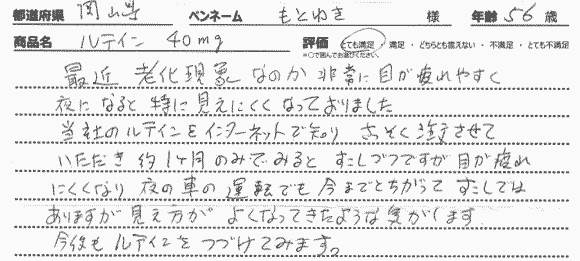 都道府県 岡山県 ペンネーム もとゆき 様 年齢 56 歳
商品名 ルテイン 40mg 評価 とても満足 ・ 満足 ・ どちらとも言えない ・ 不満足 ・ とても不満足
※○で囲んでお選びください。
最近 老化現象なのか 非常に目が疲れやすく
夜になると特に見えにくくなっておりました
当社のルテインをインターネットで知り さっそく注文させて
いただき 約1ヶ月のみでみると すこしづつですが目が疲れ
にくくなり 夜の車の運転でも今までとちがって すこしでは
ありますが見え方が よくなってきたような気がします
今後もルテインをつづけてみます。